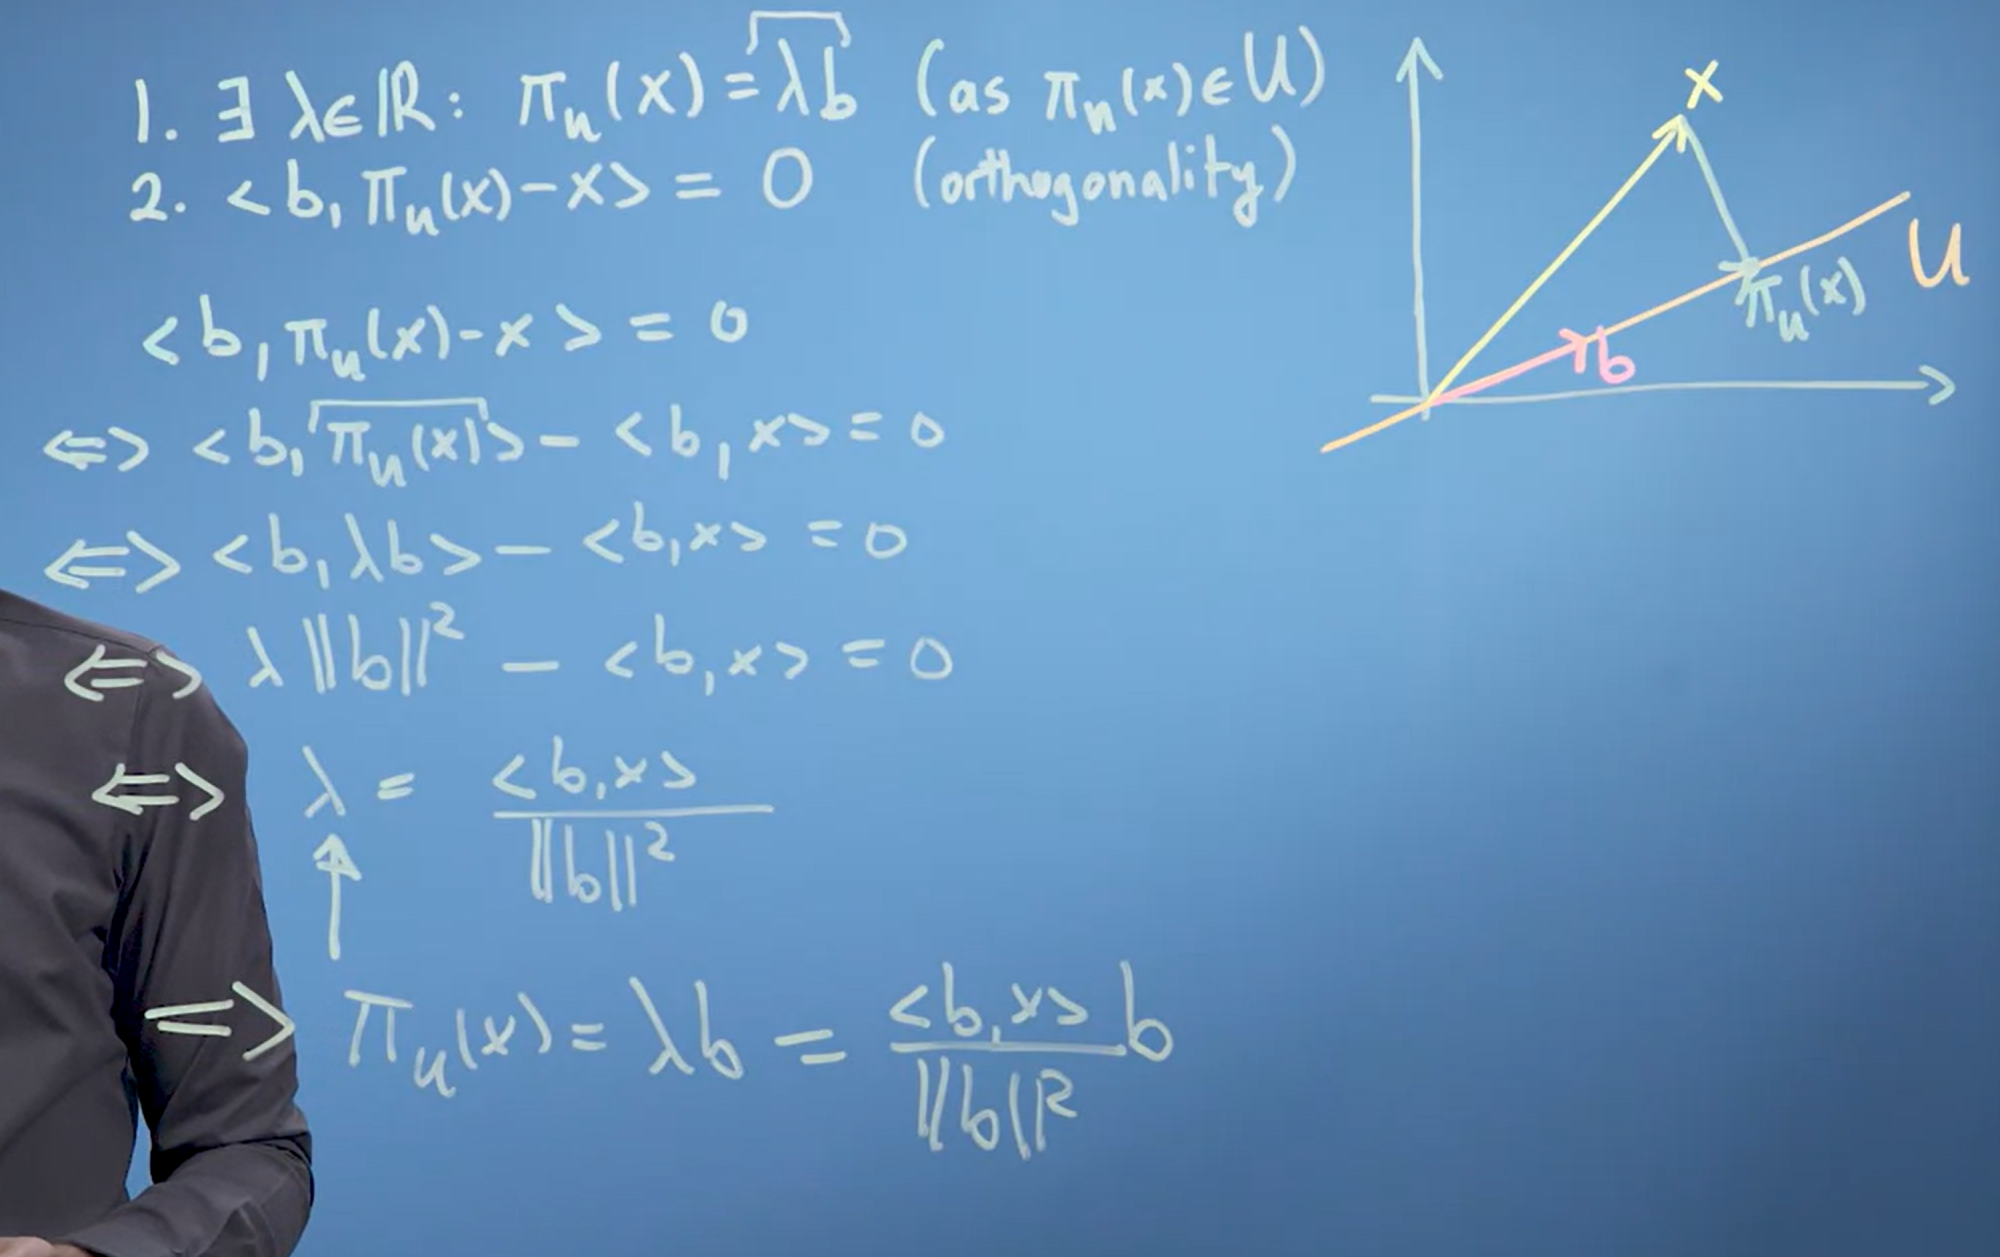 1. ∃ λ∈ℝ: π_u(x) = λb (as π_u(x)∈U)
2. <b, π_u(x)-x> = 0 (orthogonality)
<b, π_u(x)-x> = 0
⇔ <b, π_u(x)> - <b, x> = 0
⇔ <b, λb> - <b,x> = 0
⇔ λ ||b||² - <b,x> = 0
⇔ λ = <b,x> / ||b||²
⇒ π_u(x) = λb = <b,x> / ||b||² b
x
U
π_u(x)
b